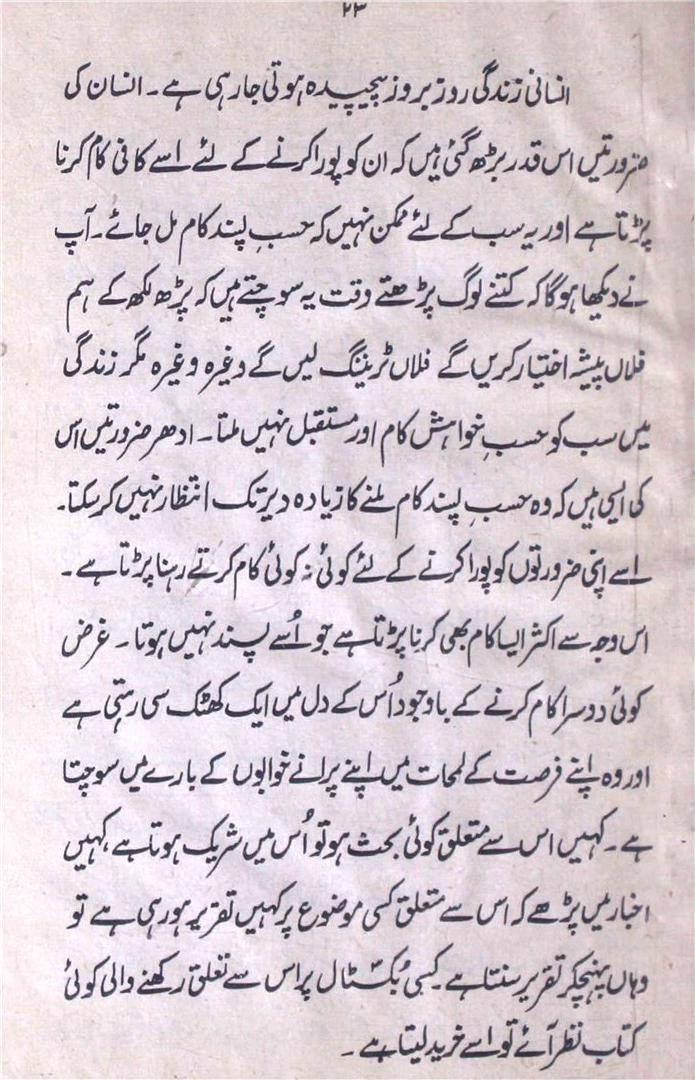 ۲۳
انسانی زندگی روز بروز پیچیدہ ہوتی جارہی ہے۔ انسان کی
ضرورتیں اس قدر بڑھ گئی ہیں کہ ان کو پورا کرنے کے لئے اسے کافی کام کرنا
پڑتا ہے اور یہ سب کے لئے ممکن نہیں کہ حسبِ پسند کام مل جائے۔ آپ
نے دیکھا ہوگا کہ کتنے لوگ پڑھتے وقت یہ سوچتے ہیں کہ پڑھ لکھ کے ہم
فلاں پیشہ اختیار کریں گے فلاں ٹریننگ لیں گے وغیرہ وغیرہ مگر زندگی
میں سب کو حسبِ خواہش کام اور مستقبل نہیں ملتا۔ ادھر ضرورتیں اس
کی ایسی ہیں کہ وہ حسبِ پسند کام ملنے کا زیادہ دیر تک انتظار نہیں کرسکتا۔
اسے اپنی ضرورتوں کو پورا کرنے کے لئے کوئی نہ کوئی کام کرتے رہنا پڑتا ہے۔
اس وجہ سے اکثر ایسا کام بھی کرنا پڑتا ہے جو اُسے پسند نہیں ہوتا۔ غرض
کوئی دوسرا کام کرنے کے باوجود اُس کے دل میں ایک کھٹک سی رہتی ہے
اور وہ اپنے فرصت کے لمحات میں اپنے پرانے خوابوں کے بارے میں سوچتا
ہے۔ کہیں اس سے متعلق کوئی بحث ہو تو اُس میں شریک ہوتا ہے، کہیں
اخبار میں پڑھے کہ اس سے متعلق کسی موضوع پر کہیں تقریر ہورہی ہے تو
وہاں پہنچکر تقریر سنتا ہے۔ کسی بُکسٹال پر اس سے تعلق رکھنے والی کوئی
کتاب نظر آئے تو اسے خرید لیتا ہے۔